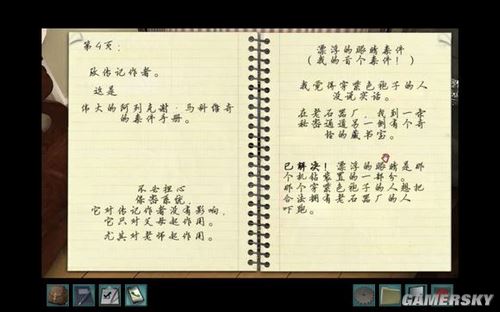 第4页:
致传记作者。
这是
伟大的阿列克谢·马科维奇
的案件手册。
不必担心
保密系统,
它对传记作者没有影响,
它只对父母起作用。
尤其对老师起作用。
漂浮的眼睛案件
(我的首个案件!)
我觉得穿紫色袍子的人
没说实话。
在老石器厂, 我找到一条
秘密通道另一侧有个奇
怪的藏书室。
已解决! 漂浮的眼睛是那
个机钻装置的一部分。
那个穿紫色袍子的人想把
合法拥有老石器厂的人
吓跑。
GAMERSKY